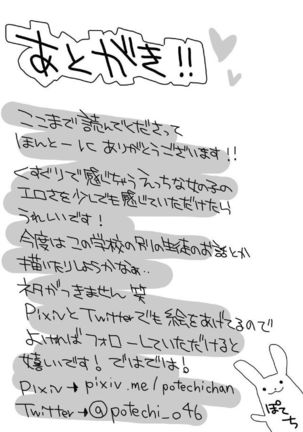 あとがき!!
ここまで読んでくださって
ほんとーに ありがとうございます!!
くすぐりで感じちゃうえっちな女の子の
エロさを少しでも感じていただけたら
うれしいです!
今度はこの学校の別の生徒のお話とか
描いたりしようかなぁ..
ネタがつきません 笑
PixivとTwitterでも絵をあげてるので
よければフォローしていただけると
嬉しいです! ではでは!
Pixiv→pixiv.me/potechichan
Twitter→@potechi_o46
ぽてち